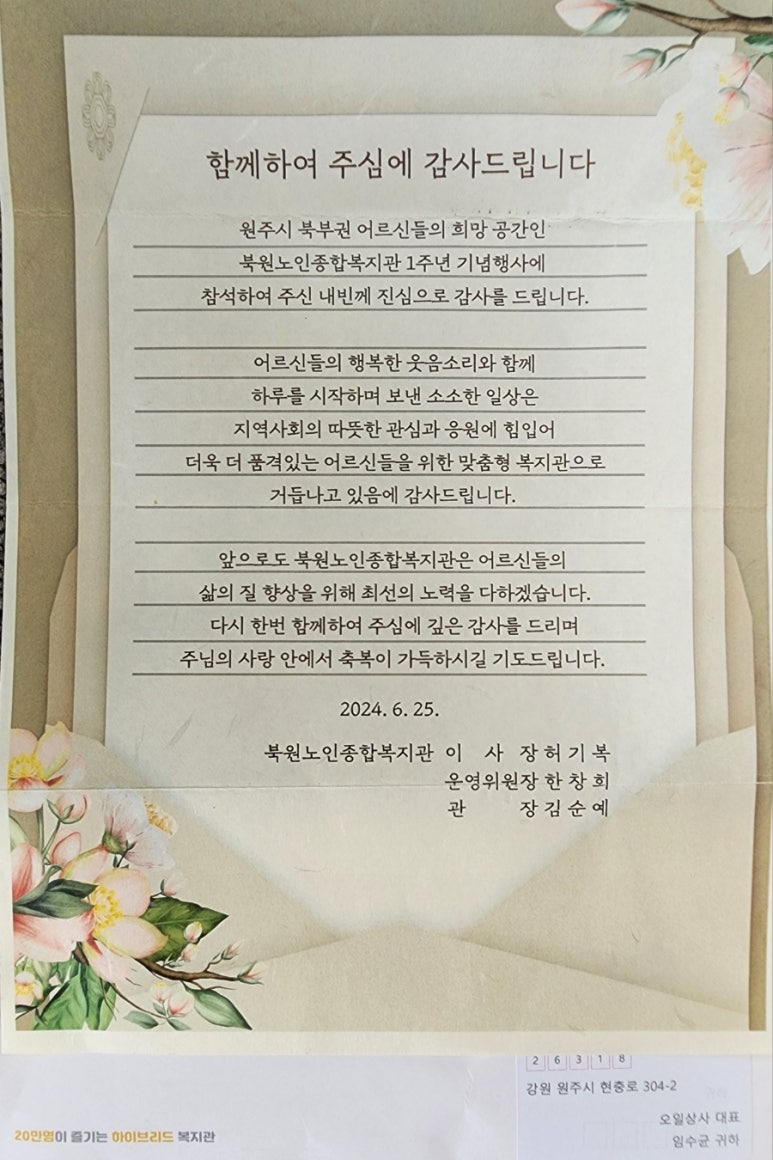 함께하여 주심에 감사드립니다
원주시 북부권 어르신들의 희망 공간인
북원노인종합복지관 1주년 기념행사에
참석하여 주신 내빈께 진심으로 감사를 드립니다.
어르신들의 행복한 웃음소리와 함께
하루를 시작하며 보낸 소소한 일상은
지역사회의 따뜻한 관심과 응원에 힘입어
더욱 더 품격있는 어르신들을 위한 맞춤형 복지관으로
거듭나고 있음에 감사드립니다.
앞으로도 북원노인종합복지관은 어르신들의
삶의 질 향상을 위해 최선의 노력을 다하겠습니다.
다시 한번 함께하여 주심에 깊은 감사를 드리며
주님의 사랑 안에서 축복이 가득하시길 기도드립니다.
2024. 6. 25.
북원노인종합복지관 이 사 장 허 기 복
운영위원장 한 창 희
관 장 김 순 예
2 6 3 1 8
강원 원주시 현충로 304-2
오일상사 대표
임수균 귀하
20만명이 즐기는 하이브리드 복지관